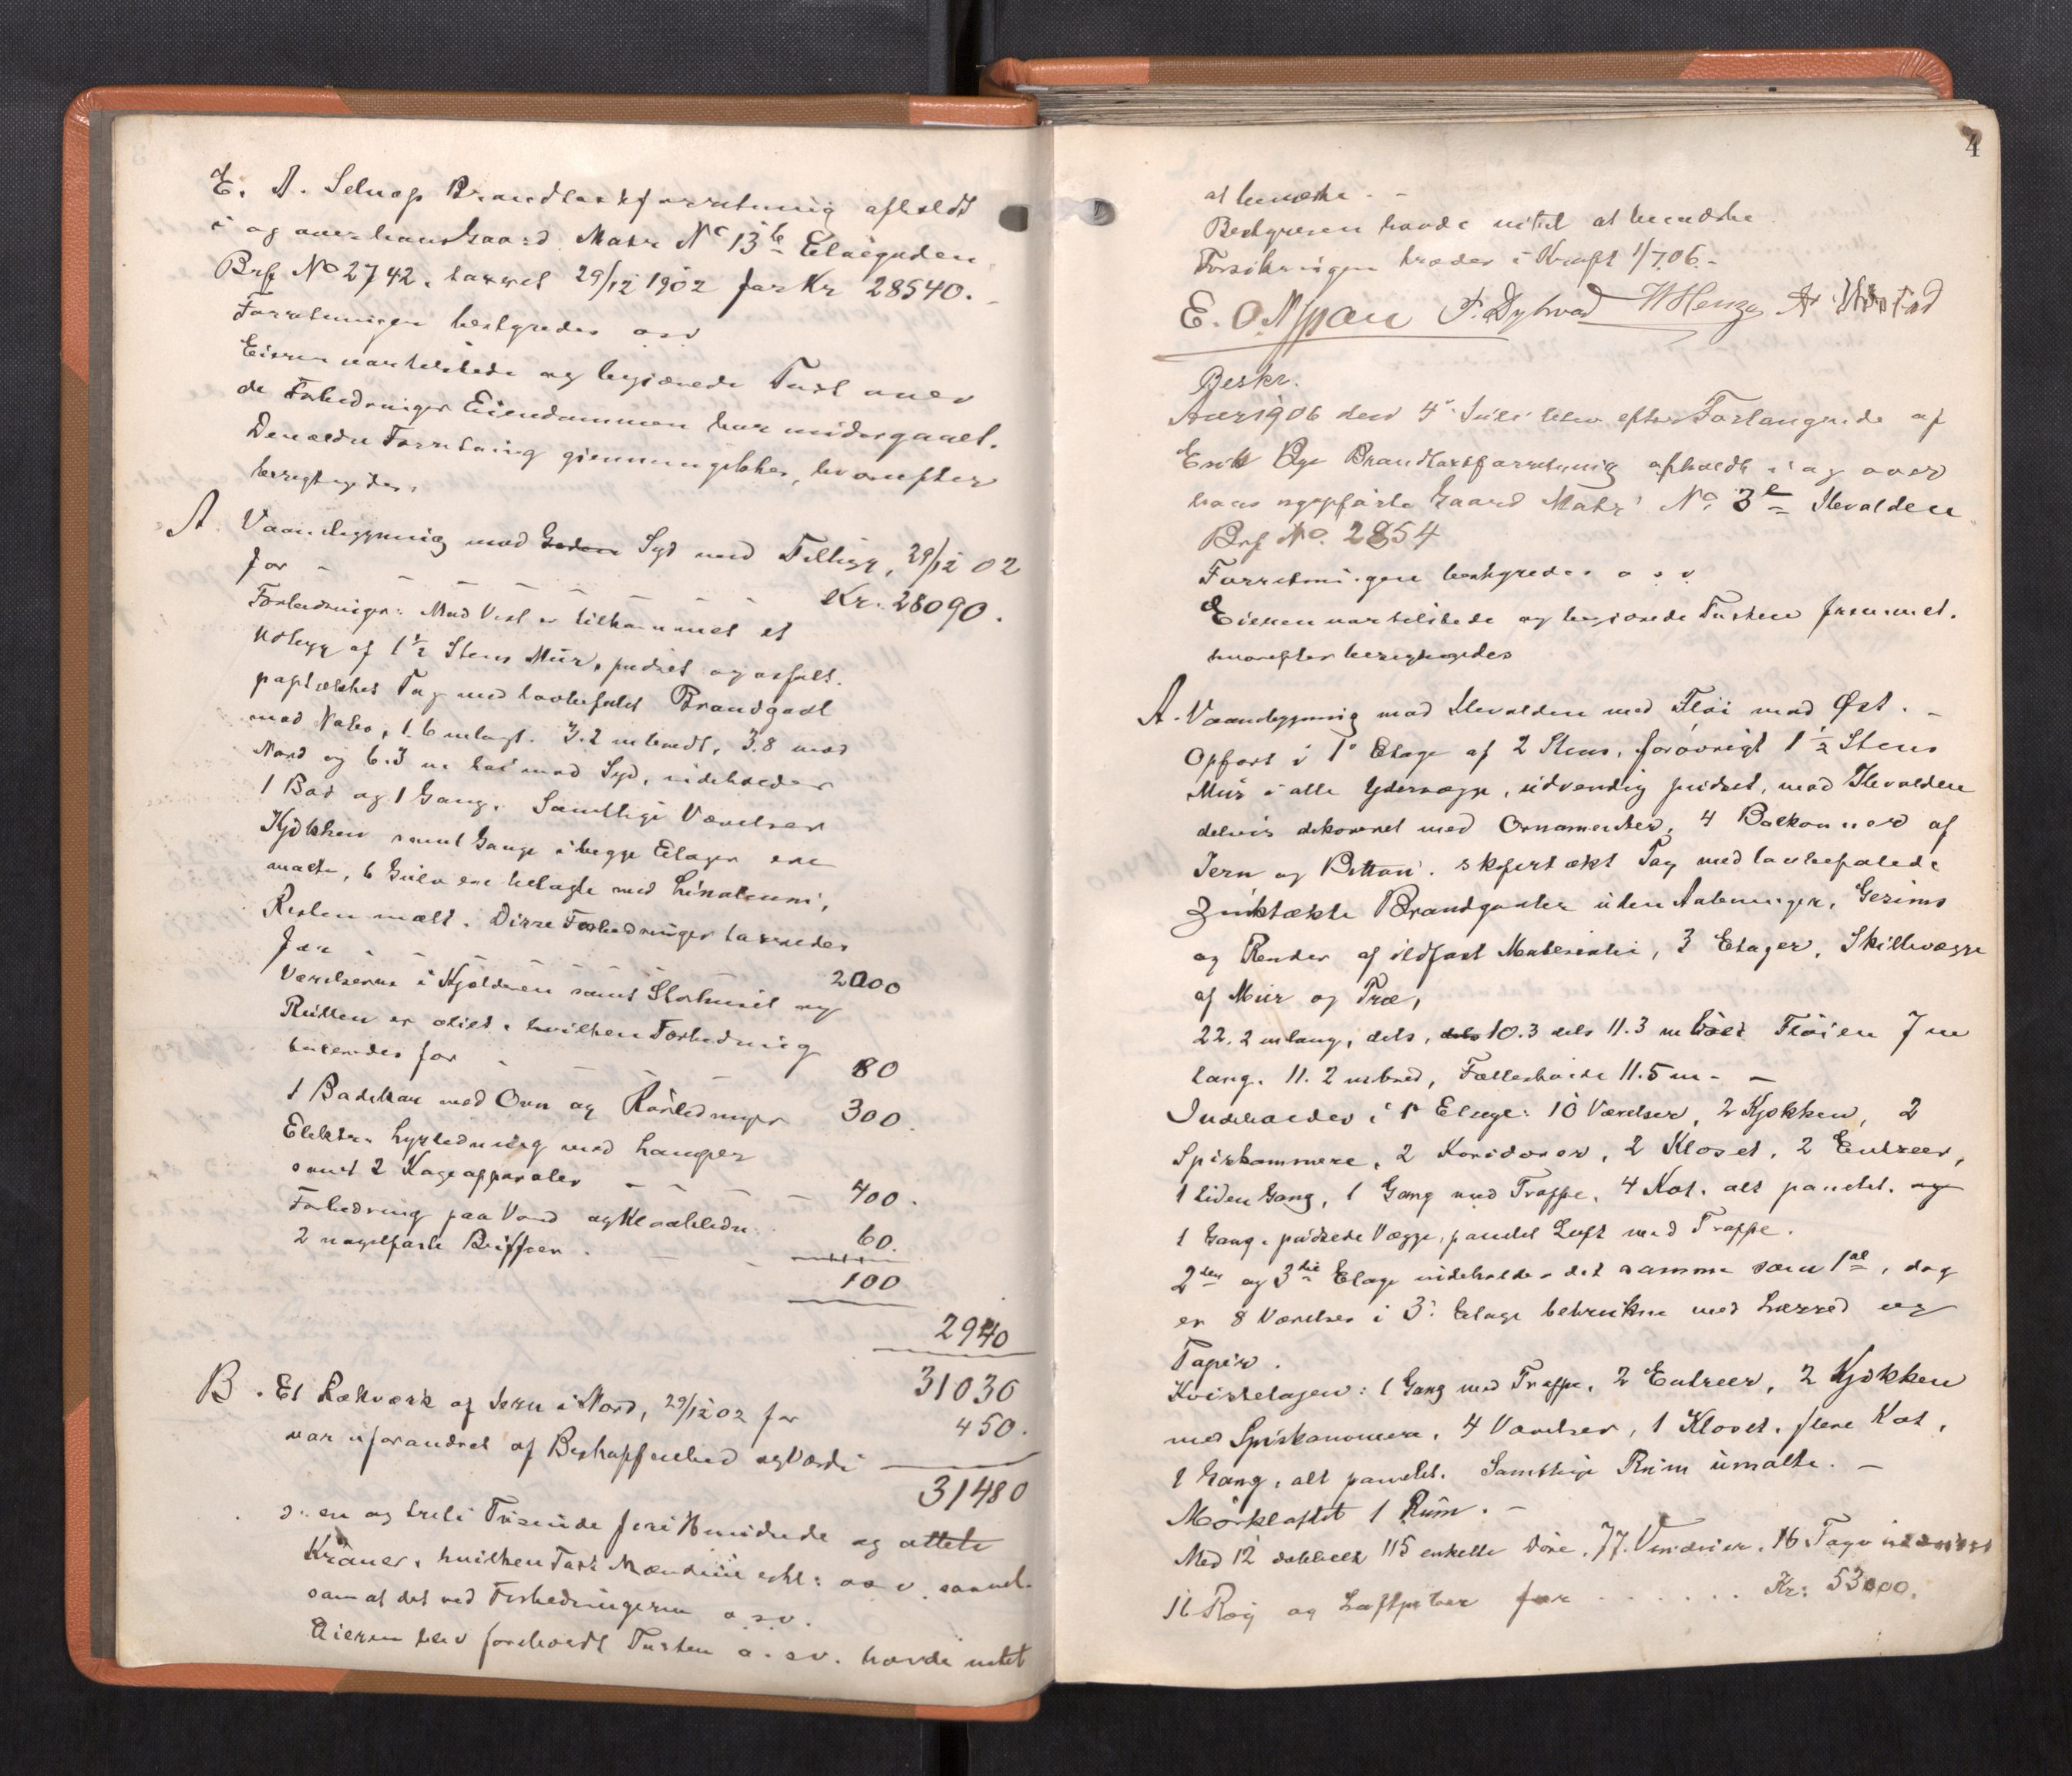 E. A. Selnæs Brandtaxtforretning afholdt
i og over hans Gaard Matr No 13b Elvegaden
Brf No 2742. taxeret 29/12 1902 for Kr 28540.
Forretningen bestyredes o.s.v
Eieren var tilstede og begjærede Taxt over
de Forbedringer Eiendommen har undergaaet.
Den ældre Forretning gjennemgikkes, hvorefter
besigtigedes.
A. Vaaningsbygning mod Syd med Tillæg, 29/12 02
for - - - - - - Kr. 28090.
Forbedringer: Mod Vest er tilkommet et
Udbygg af 1½ Stens Mur, pudset og asfalt.
paptækket Tag med lovbefalet Brandgavl
mod Nabo, 1.6 m langt. 3.2 m bredt, 3.8 mod
Nord og 6.3 m høi mod Syd, indeholder
1 Bad og 1 Gang. Samtlige Værelser
Kjøkken samt Gange i begge Etager ere
malte, 6 Gulv ere belagte med Linoleum,
Resten malt. Disse Forbedringer taxeredes
for - - - - - - 2000
Værelserne i Kjælderen samt Storhuset og
er oliet, hvilken Forbedring
taxeredes for - - - 80
1 Badekar med Ovn og Rørledninger 300.
Elektr. Lysledning med Lamper
samt 2 Kogeapparater - - - - 400.
Forbedring paa Vand og Kloakledn. 60.
2 nagelfaste Buffeer. - - 100
2940
31030
B. Et Rækværk af Jern i Nord, 29/12 02 for 450.
var uforandret af Beskaffenhed og Værdi
31480
s: en og treti Tusinde fire Hundrede og otteti
Kroner, hvilken Taxt Mændene erkl: o s v. samt
som at det ved Forbedringerne o.s.v.
Eieren blev foreholdt Taxten o. sv. havde intet
4
at bemærke. -
Bestyreren havde intet at bemærke
Forsikringen træder i Kraft 1/7.06.-
E. O. P. Dybvad
Beskr.
Aar 1906 den 4' Juli blev efter Forlangende af
Brandtaxtforretning afholdt i og over
hans nyopførte Gaard Matr. No. 3b Ilevolden
Brf No. 2854
Forretningen bestyredes o.s.v
Eieren var tilstede og begjærede Taxten fremmet.
hvorefter besigtigedes
A. Vaaningsbygning mod Ilevolden med Fløi mod Øst. -
Opført i 1' Etage af 2 Stens, forøvrigt 1½ Stens
Mur i alle Ydervægge, udvendig pudset, mod Ilevolden
delvis dekoreret med Ornamenter, 4 Balkonner af
Jern og Betton. skifertækt Tag med lovbefalede
Zinktækte Brandgavler uden Aabninger, Gesims
og Render af ildfast Materiale, 3 Etager, Skillevægge
af Mur og Træ,
22.2 m lang, dels, 10.3 dels 11.3 m bred Fløien 7 m
lang. 11.2 m bred, Fælleshøide 11.5 m - -
Indeholder i 1' Etage: 10 Værelser, 2 Kjøkken, 2
Spiskammere, 2 Koridorer, 2 Kloset, 2 Entreer,
1 liden Gang, 1 Gang med Trappe, 4 Kot. alt panelet. og
1 Gang, pudsede Vægge, panelet Loft med Trappe.
2den og 3die Etage indeholder det samme som 1ste, dog
er 8 Værelser i 3' Etage betrukne med Lærred og
Papir.
Kvistetagen: 1 Gang med Trappe, 2 Entreer, 2 Kjøkken
med Spiskammere, 4 Værelser, 1 Kloset, flere Kot,
1 Gang, alt panelet. Samtlige Rum umalte. -
Mørkloftet 1 Rum. -
Med 12 dobbelte 115 enkelte Døre, 77. Vinduer, 16 Tagvinduer
11 Røg og Luftpiber for . . . . . . Kr: 53000.